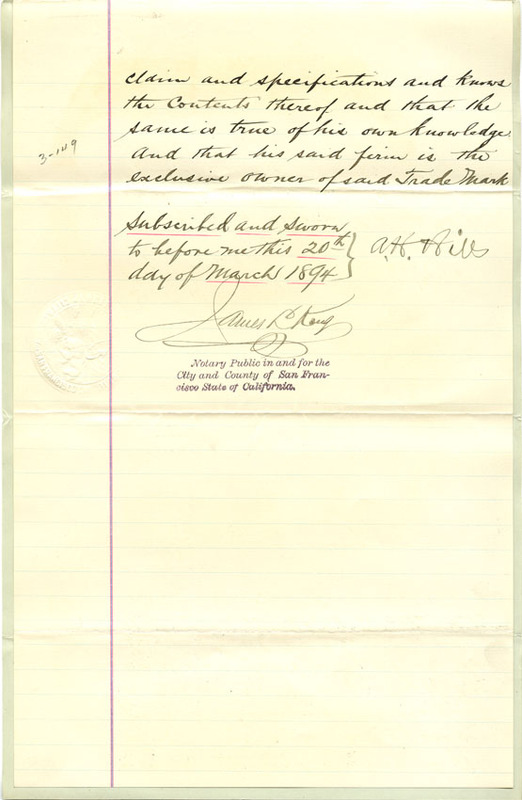 claim and specifications and knows
the Contents thereof and that the
same is true of his own knowledge
3-149
And that his said firm is the
exclusive owner of said Trade Mark
Subscribed and Sworn
to before me this 20th
day of March 1894
A.H.
James L. King
Notary Public in and for the
City and County of San Fran-
cisco State of California.